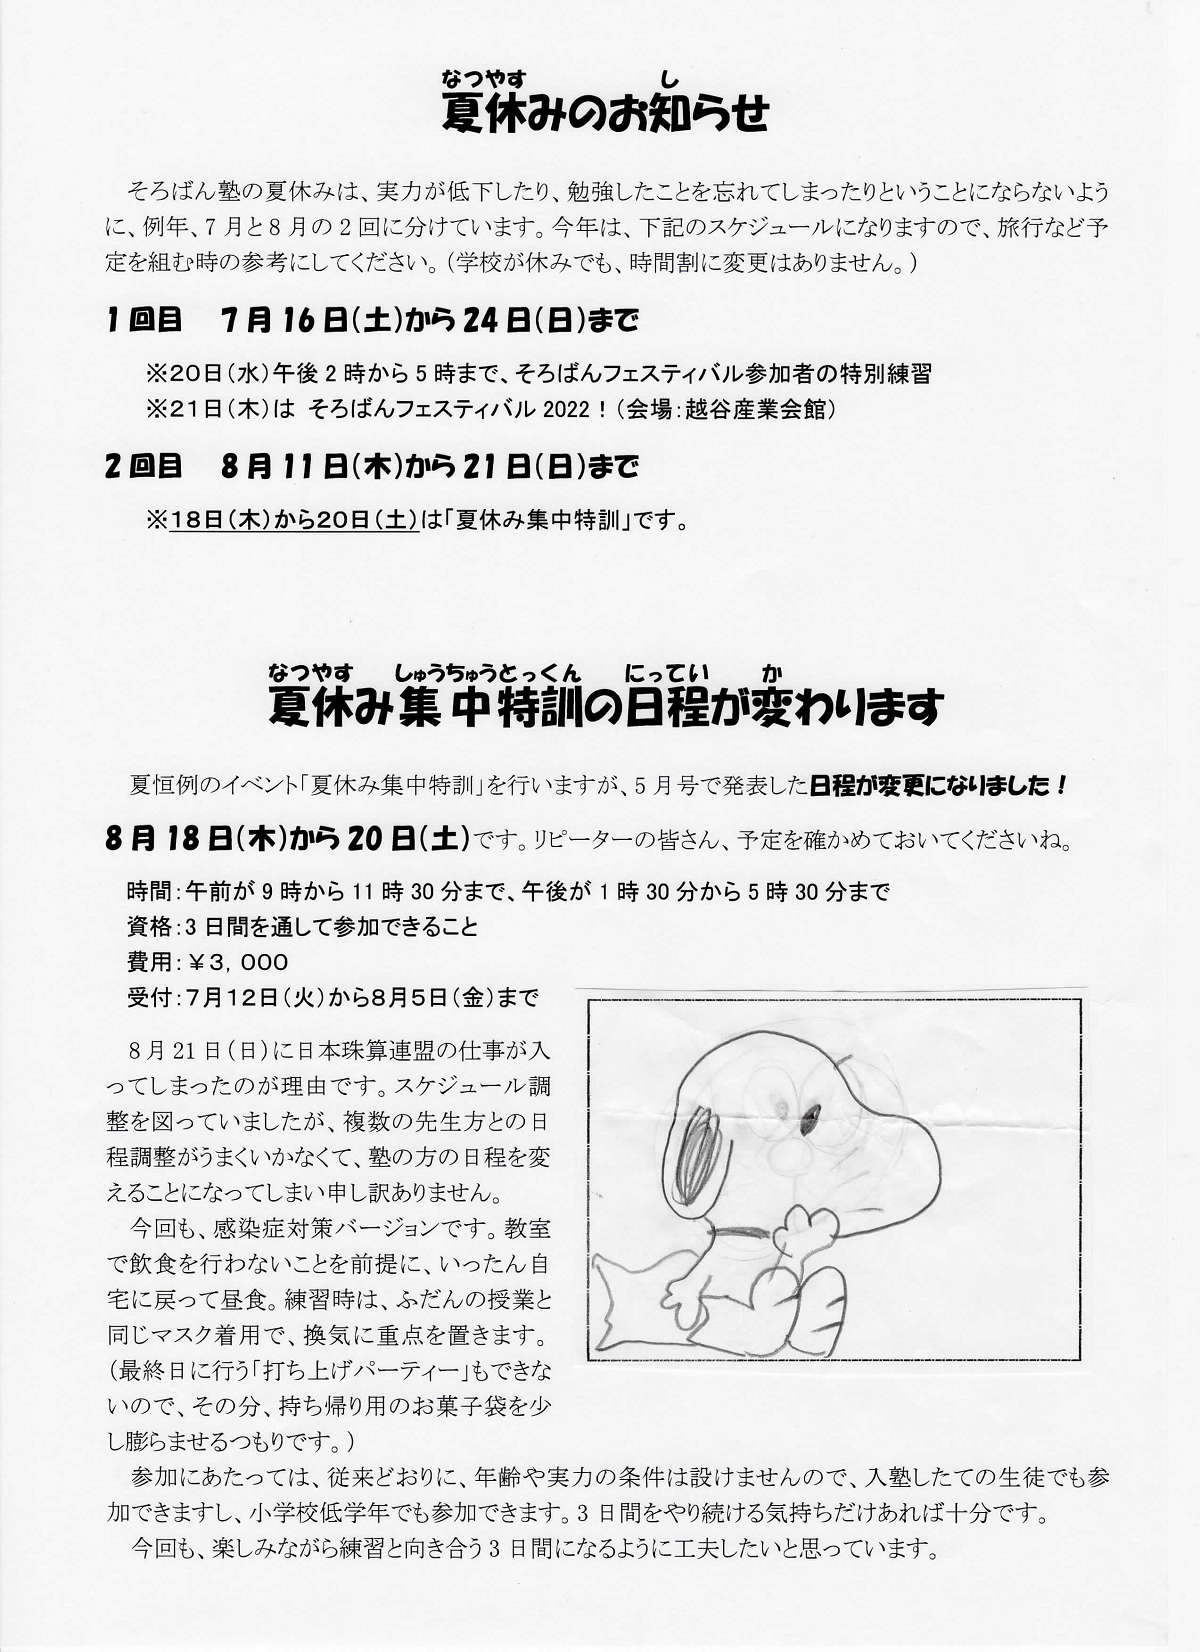 なつやす　し
夏休みのお知らせ
そろばん塾の夏休みは、実力が低下したり、勉強したことを忘れてしまったりということにならないよう
に、例年、7月と8月の2回に分けています。今年は、下記のスケジュールになりますので、旅行など予
定を組む時の参考にしてください。（学校が休みでも、時間割に変更はありません。）
1回目　7月16日（土）から24日（日）まで
※20日（水）午後2時から5時まで、そろばんフェスティバル参加者の特別練習
※21日（木）は そろばんフェスティバル2022！（会場：越谷産業会館）
2回目　8月11日（木）から21日（日）まで
※18日（木）から20日（土）は「夏休み集中特訓」です。
なつやす　しゅうちゅうとっくん　にってい　か
夏休み集中特訓の日程が変わります
夏恒例のイベント「夏休み集中特訓」を行いますが、5月号で発表した日程が変更になりました！
8月18日（木）から20日（土）です。リピーターの皆さん、予定を確かめておいてくださいね。
時間：午前が9時から11時30分まで、午後が1時30分から5時30分まで
資格：3日間を通して参加できること
費用：￥3，000
受付：7月12日（火）から8月5日（金）まで
8月21日（日）に日本珠算連盟の仕事が入
ってしまったのが理由です。スケジュール調
整を図っていましたが、複数の先生方との日
程調整がうまくいかなくて、塾の方の日程を変
えることになってしまい申し訳ありません。
今回も、感染症対策バージョンです。教室
で飲食を行わないことを前提に、いったん自
宅に戻って昼食。練習時は、ふだんの授業と
同じマスク着用で、換気に重点を置きます。
（最終日に行う「打ち上げパーティー」もできな
いので、その分、持ち帰り用のお菓子袋を少
し膨らませるつもりです。）
参加にあたっては、従来どおりに、年齢や実力の条件は設けませんので、入塾したての生徒でも参
加できますし、小学校低学年でも参加できます。3日間をやり続ける気持ちだけあれば十分です。
今回も、楽しみながら練習と向き合う3日間になるように工夫したいと思っています。